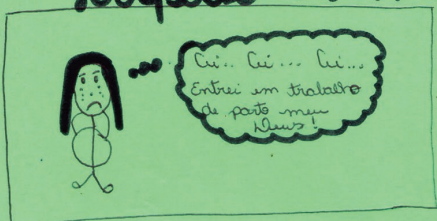 Ai.. Ai... Ai...
Entrei em trabalho
de parto meu
Deus!